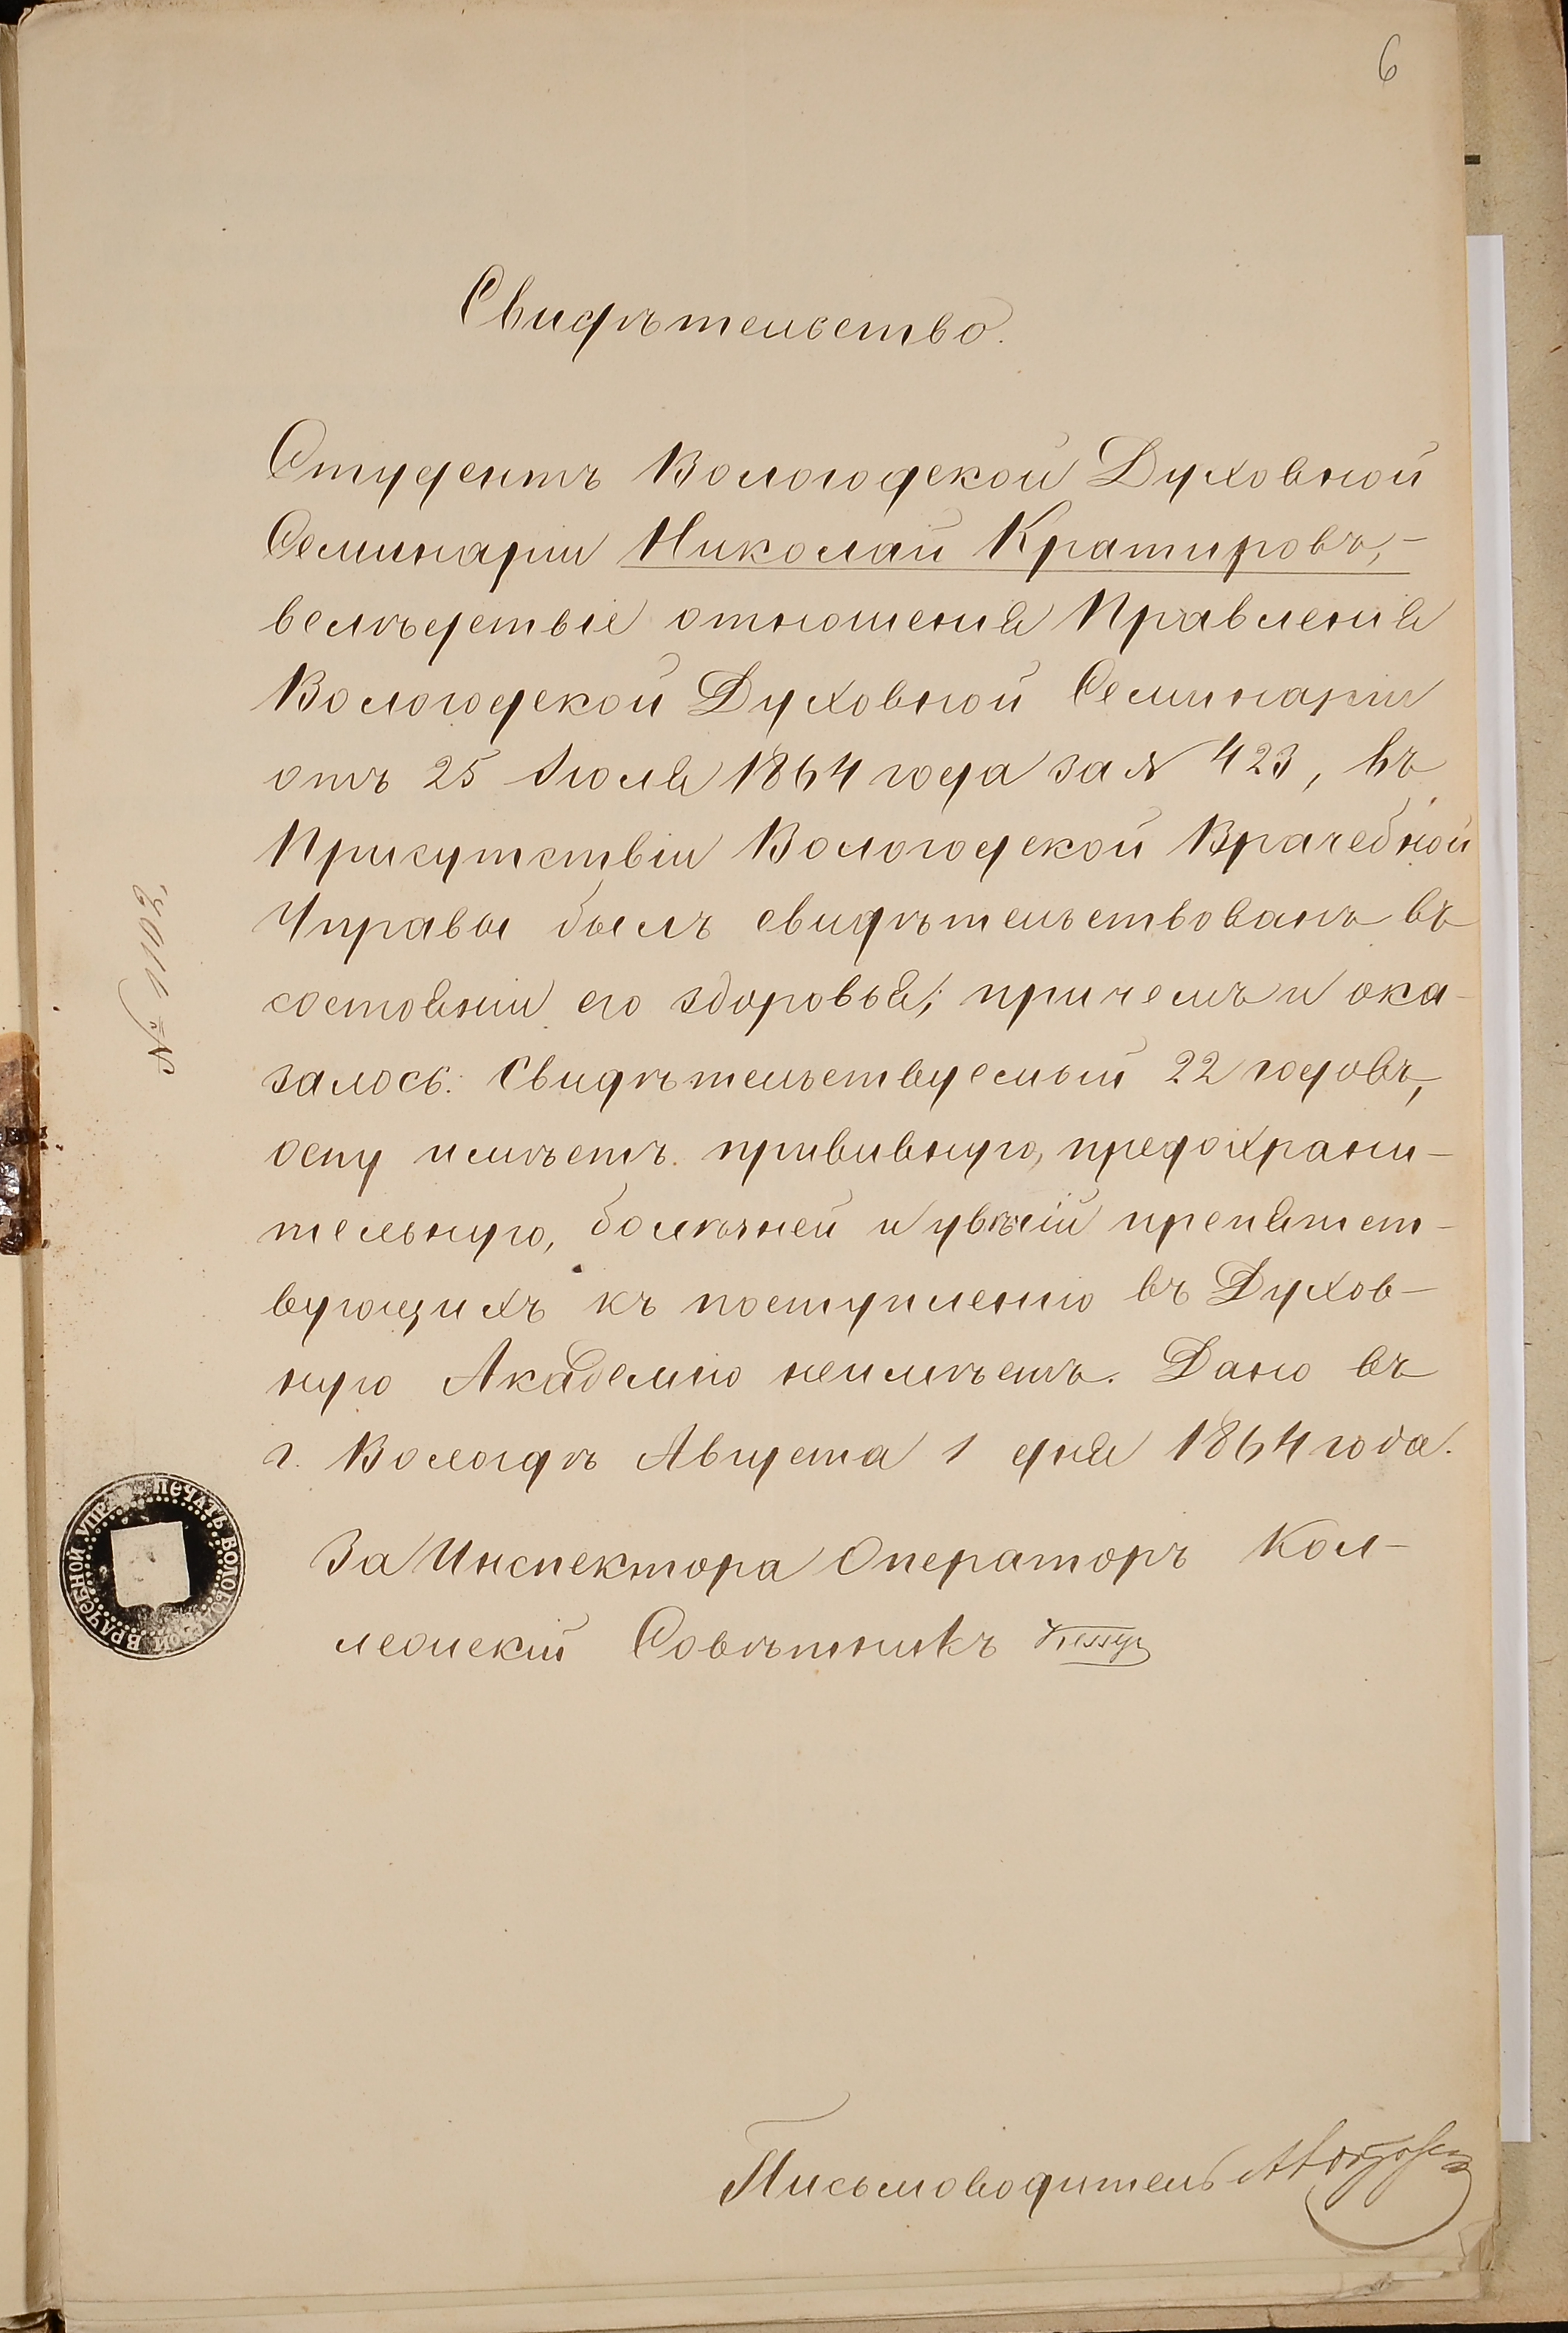 6
Свидѣтельство.
Студентъ Вологодской Духовной
Семинаріи Николай Кратировъ,-
вслѣдствіе отношенія Правленія
Вологодской Духовной Семинаріи
отъ 25 Іюля 1864 года за № 423, въ
Присутствіи Вологодской Врачебной
Управы былъ свидѣтельствованъ въ
состояніи его здоровья; причемъ и ока-
залось: Свидѣтельствуемый 22 годовъ,
оспу имѣетъ прививную, предохрани-
тельную, болѣзней и увѣчій препятст-
вующихъ къ поступленію въ Духов-
ную Академію неимѣетъ. Дано въ
г. Вологдѣ Августа 1 дня 1864 года.
За Инспектора Операторъ Кол-
лежскій Совѣтникъ
Письмоводитель
№ 1103.
ПЕЧАТЬ ВОЛОГОДСКОЙ ВРАЧЕБНОЙ УПРАВЫ